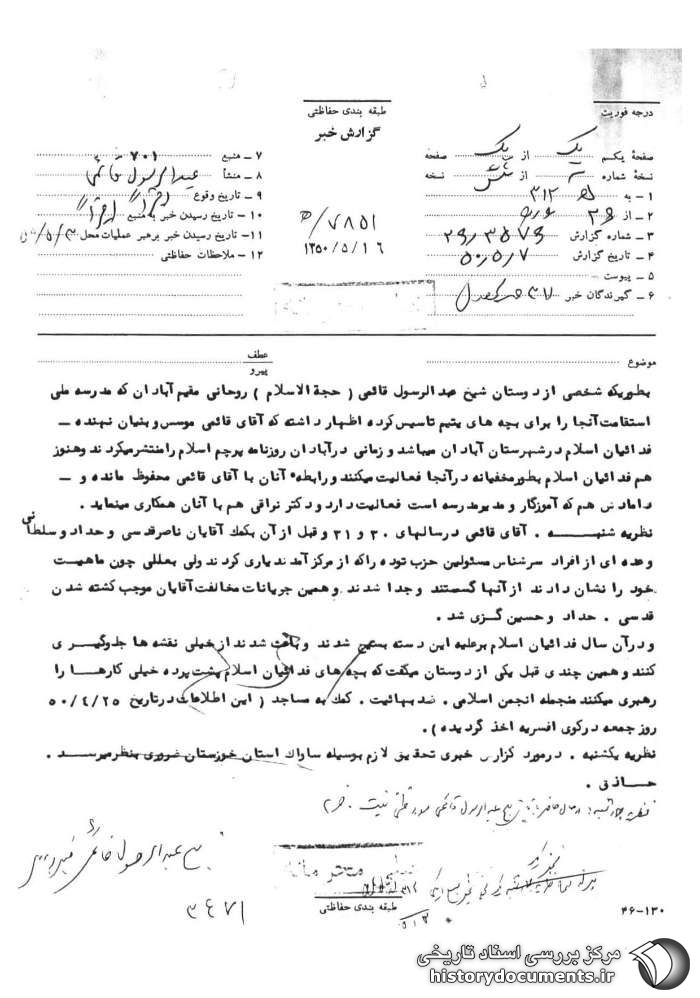 درجه فوریت
طبقه بندی حفاظتی
گزارش خبر
صفحهٔ یکم یک از یک صفحه
نسخهٔ شماره از شش نسخه
۱ – به ۳۱۲ ه
۲ – از
۳ – شماره گزارش
۴ – تاریخ گزارش ۵۰٫۵٫۷
۵ – پیوست
۶ – گیرندگان خبر
۷ – منبع ۷۰۱
۸ – منشأ عبدالرسول قائمی
۹ – تاریخ وقوع اخیراً
۱۰ – تاریخ رسیدن خبر به منبع اخیراً
۱۱ – تاریخ رسیدن خبر برهبر عملیات محل
۱۲ – ملاحظات حفاظتی
ه/۷۸۵۱
۱۳۵۰/۵/۱۶
موضوع
عطف
پیرو
بطوریکه شخصی از دوستان شیخ عبدالرسول قائمی ( حجة الاسلام ) روحانی مقیم آبادان که مدرسه ملی
استقامت آنجا را برای بچه های یتیم تاسیس کرده اظهار داشته که آقای قائمی موسس و بنیان نهنده –
فدائیان اسلام در شهرستان آبادان میباشد و زمانی در آبادان روزنامه پرچم اسلام را منتشر میکردند و هنوز
هم فدائیان اسلام بطور مخفیانه در آنجا فعالیت میکنند و رابطه آنان با آقای قائمی محفوظ مانده و –
دامادش هم که آموزگار و مدیر مدرسه است فعالیت دارد و دکتر نراقی هم با آنان همکاری مینماید .
نظریه شنبه . آقای قائمی در سالهای ۳۰ و ۳۱ و قبل از آن بکمک آقایان ناصر قدسی و حداد و سلطانی
و عده ای از افراد سرشناس مسئولین حزب توده را که از مرکز آمدند یاری کردند ولی بعللی چون ماهیت
خود را نشان دادند از آنها گسستند و جدا شدند و همین جریانات مخالفت آقایان موجب کشته شدن
قدسی . حداد و حسین گزی شد .
و در آن سال فدائیان اسلام بر علیه این دسته بسیج شدند و باعث شدند از خیلی نقشه ها جلوگیری
کنند و همین چندی قبل یکی از دوستان میگفت که بچه های فدائیان اسلام پشت پرده خیلی کارها را
رهبری میکنند منجمله انجمن اسلامی . ضد بهائیت . کمک به مساجد ( این اطلاعات در تاریخ ۵۰/۴/۲۵
روز جمعه در کوی افسریه اخذ گردیده ) .
نظریه یکشنبه . در مورد گزارش خبری تحقیق لازم بوسیله ساواک استان خوزستان ضروری بنظر میرسد .
حاذقی .
شیخ عبدالرسول قائمی
۳۴۷۱
طبقه بندی حفاظتی
۴۶-۱۳۰
مرکز بررسی اسناد تاریخی
historydocuments.ir